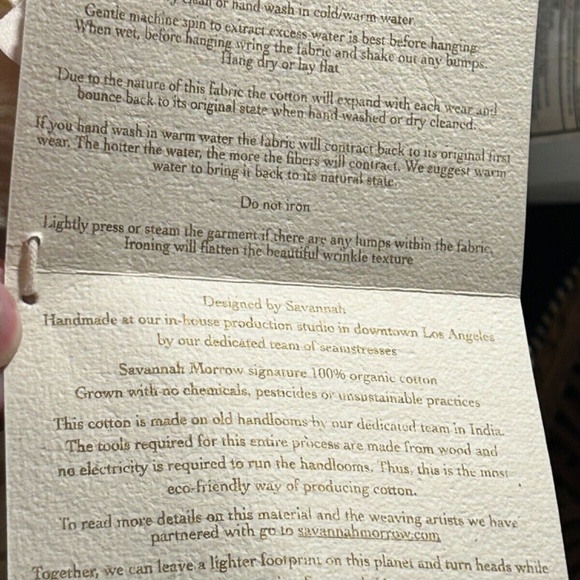 clean or hand wash in cold/warm water
Gentle machine spin to extract excess water is best before hanging.
When wet, before hanging wring the fabric and shake out any bumps.
Hang dry or lay flat
Due to the nature of this fabric the cotton will expand with each wear and
bounce back to its original state when hand washed or dry cleaned.
If you hand wash in warm water the fabric will contract back to its original first
wear. The hotter the water, the more the fibers will contract. We suggest warm
water to bring it back to its natural state.
Do not iron
Lightly press or steam the garment if there are any lumps within the fabric,
Ironing will flatten the beautiful wrinkle texture
Designed by Savannah
Handmade at our in-house production studio in downtown Los Angeles
by our dedicated team of seamstresses
Savannah Morrow signature 100% organic cotton
Grown with no chemicals, pesticides or unsustainable practices
This cotton is made on old handlooms by our dedicated team in India.
The tools required for this entire process are made from wood and
no electricity is required to run the handlooms. Thus, this is the most
eco-friendly way of producing cotton.
To read more details on this material and the weaving artists we have
partnered with go to savannahmorrow.com
Together, we can leave a lighter footprint on this planet and turn heads while